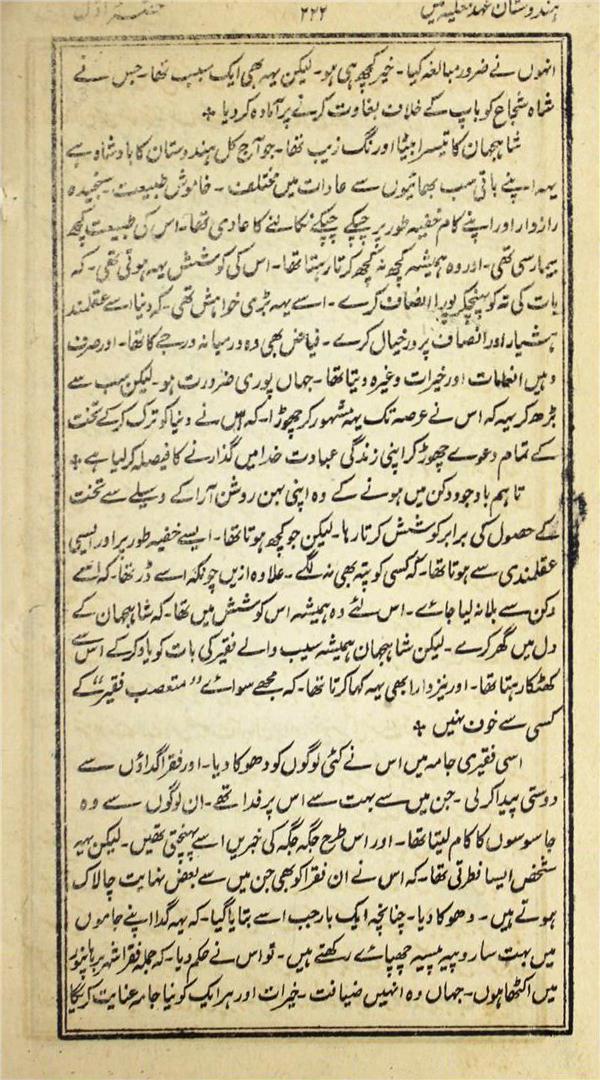 ہندوستان عہد مغلیہ میں ۲۲۲ حصہ اول
انہوں نے ضرور مبالغہ کیا۔ خیر کچھ ہی ہو۔ لیکن یہہ بھی ایک سبب تھا۔ جس نے
شاہ شجاع کو باپ کے خلاف بغاوت کرنے پر آمادہ کر دیا ٭
شاہجہان کا تیسرا بیٹا اورنگ زیب تھا۔ جو آج کل ہندوستان کا بادشاہ ہے
یہہ اپنے باقی سب بھائیوں سے عادات میں مختلف۔ خاموش طبیعت سنجیدہ
رازدار اور اپنے کام خفیہ طور پر چپکے چپکے نکالنے کا عادی تھا۔ اس کی طبیعت کچھ
بیمار سی تھی۔ اور وہ ہمیشہ کچھ نہ کچھ کرتا رہتا تھا۔ اس کی کوشش یہہ ہوتی تھی۔ کہ
بات کی تہ کو پہنچکر پورا انصاف کرے۔ اسے یہہ بڑی خواہش تھی۔ کہ دنیا اسے عقلمند
ہشیار اور انصاف پرور خیال کرے۔ فیاض بھی وہ درمیانہ درجے کا تھا۔ اور صرف
وہیں انعامات اور خیرات وغیرہ دیتا تھا۔ جہاں پوری ضرورت ہو۔ لیکن سب سے
بڑھ کر یہہ کہ اس نے عرصہ تک یہہ مشہور کر چھوڑا۔ کہ میں نے دنیا کو ترک کر کے تخت
کے تمام دعوے چھوڑ کر اپنی زندگی عبادت خدا میں گذارنے کا فیصلہ کر لیا ہے ٭
تاہم باوجود دکن میں ہونے کے وہ اپنی بہن روشن آرا کے وسیلے سے تخت
کے حصول کی برابر کوشش کرتا رہا۔ لیکن جو کچھ ہوتا تھا۔ ایسے خفیہ طور پر اور ایسی
عقلمندی سے ہوتا تھا۔ کہ کسی کو پتہ بھی نہ لگے۔ علاوہ ازیں چونکہ اسے ڈر تھا۔ کہ اسے
دکن سے بلا نہ لیا جائے۔ اس لئے وہ ہمیشہ اس کوشش میں تھا۔ کہ شاہجہان کے
دل میں گھر کرے۔ لیکن شاہجہان ہمیشہ سیب والے فقیر کی بات کو یاد کر کے اس سے
کھٹکا رہتا تھا۔ اور نیز دارا بھی یہہ کہا کرتا تھا۔ کہ مجھے سوائے ”متعصب فقیر“ کے
کسی سے خوف نہیں ٭
اسی فقیری جامہ میں اس نے کئی لوگوں کو دھوکا دیا۔ اور فقرا گداؤں سے
دوستی پیدا کر لی۔ جن میں سے بہت سے اس پر فدا تھے۔ ان لوگوں سے وہ
جاسوسوں کا کام لیتا تھا۔ اور اس طرح جگہ جگہ کی خبریں اسے پہنچتی تھیں۔ لیکن یہہ
شخص ایسا فطرتی تھا۔ کہ اس نے ان فقرا کو بھی جن میں سے بعض نہایت چالاک
ہوتے ہیں۔ دھوکا دیا۔ چنانچہ ایک بار جب اسے بتایا گیا۔ کہ یہہ گدا اپنے جاموں
میں بہت سا روپیہ پیسہ چھپائے رکھتے ہیں۔ تو اس نے حکم دیا۔ کہ جملہ فقرا شہر
میں اکٹھا ہوں۔ جہاں وہ انہیں ضیافت۔ خیرات اور ہر ایک کو نیا جامہ عنایت کریگا